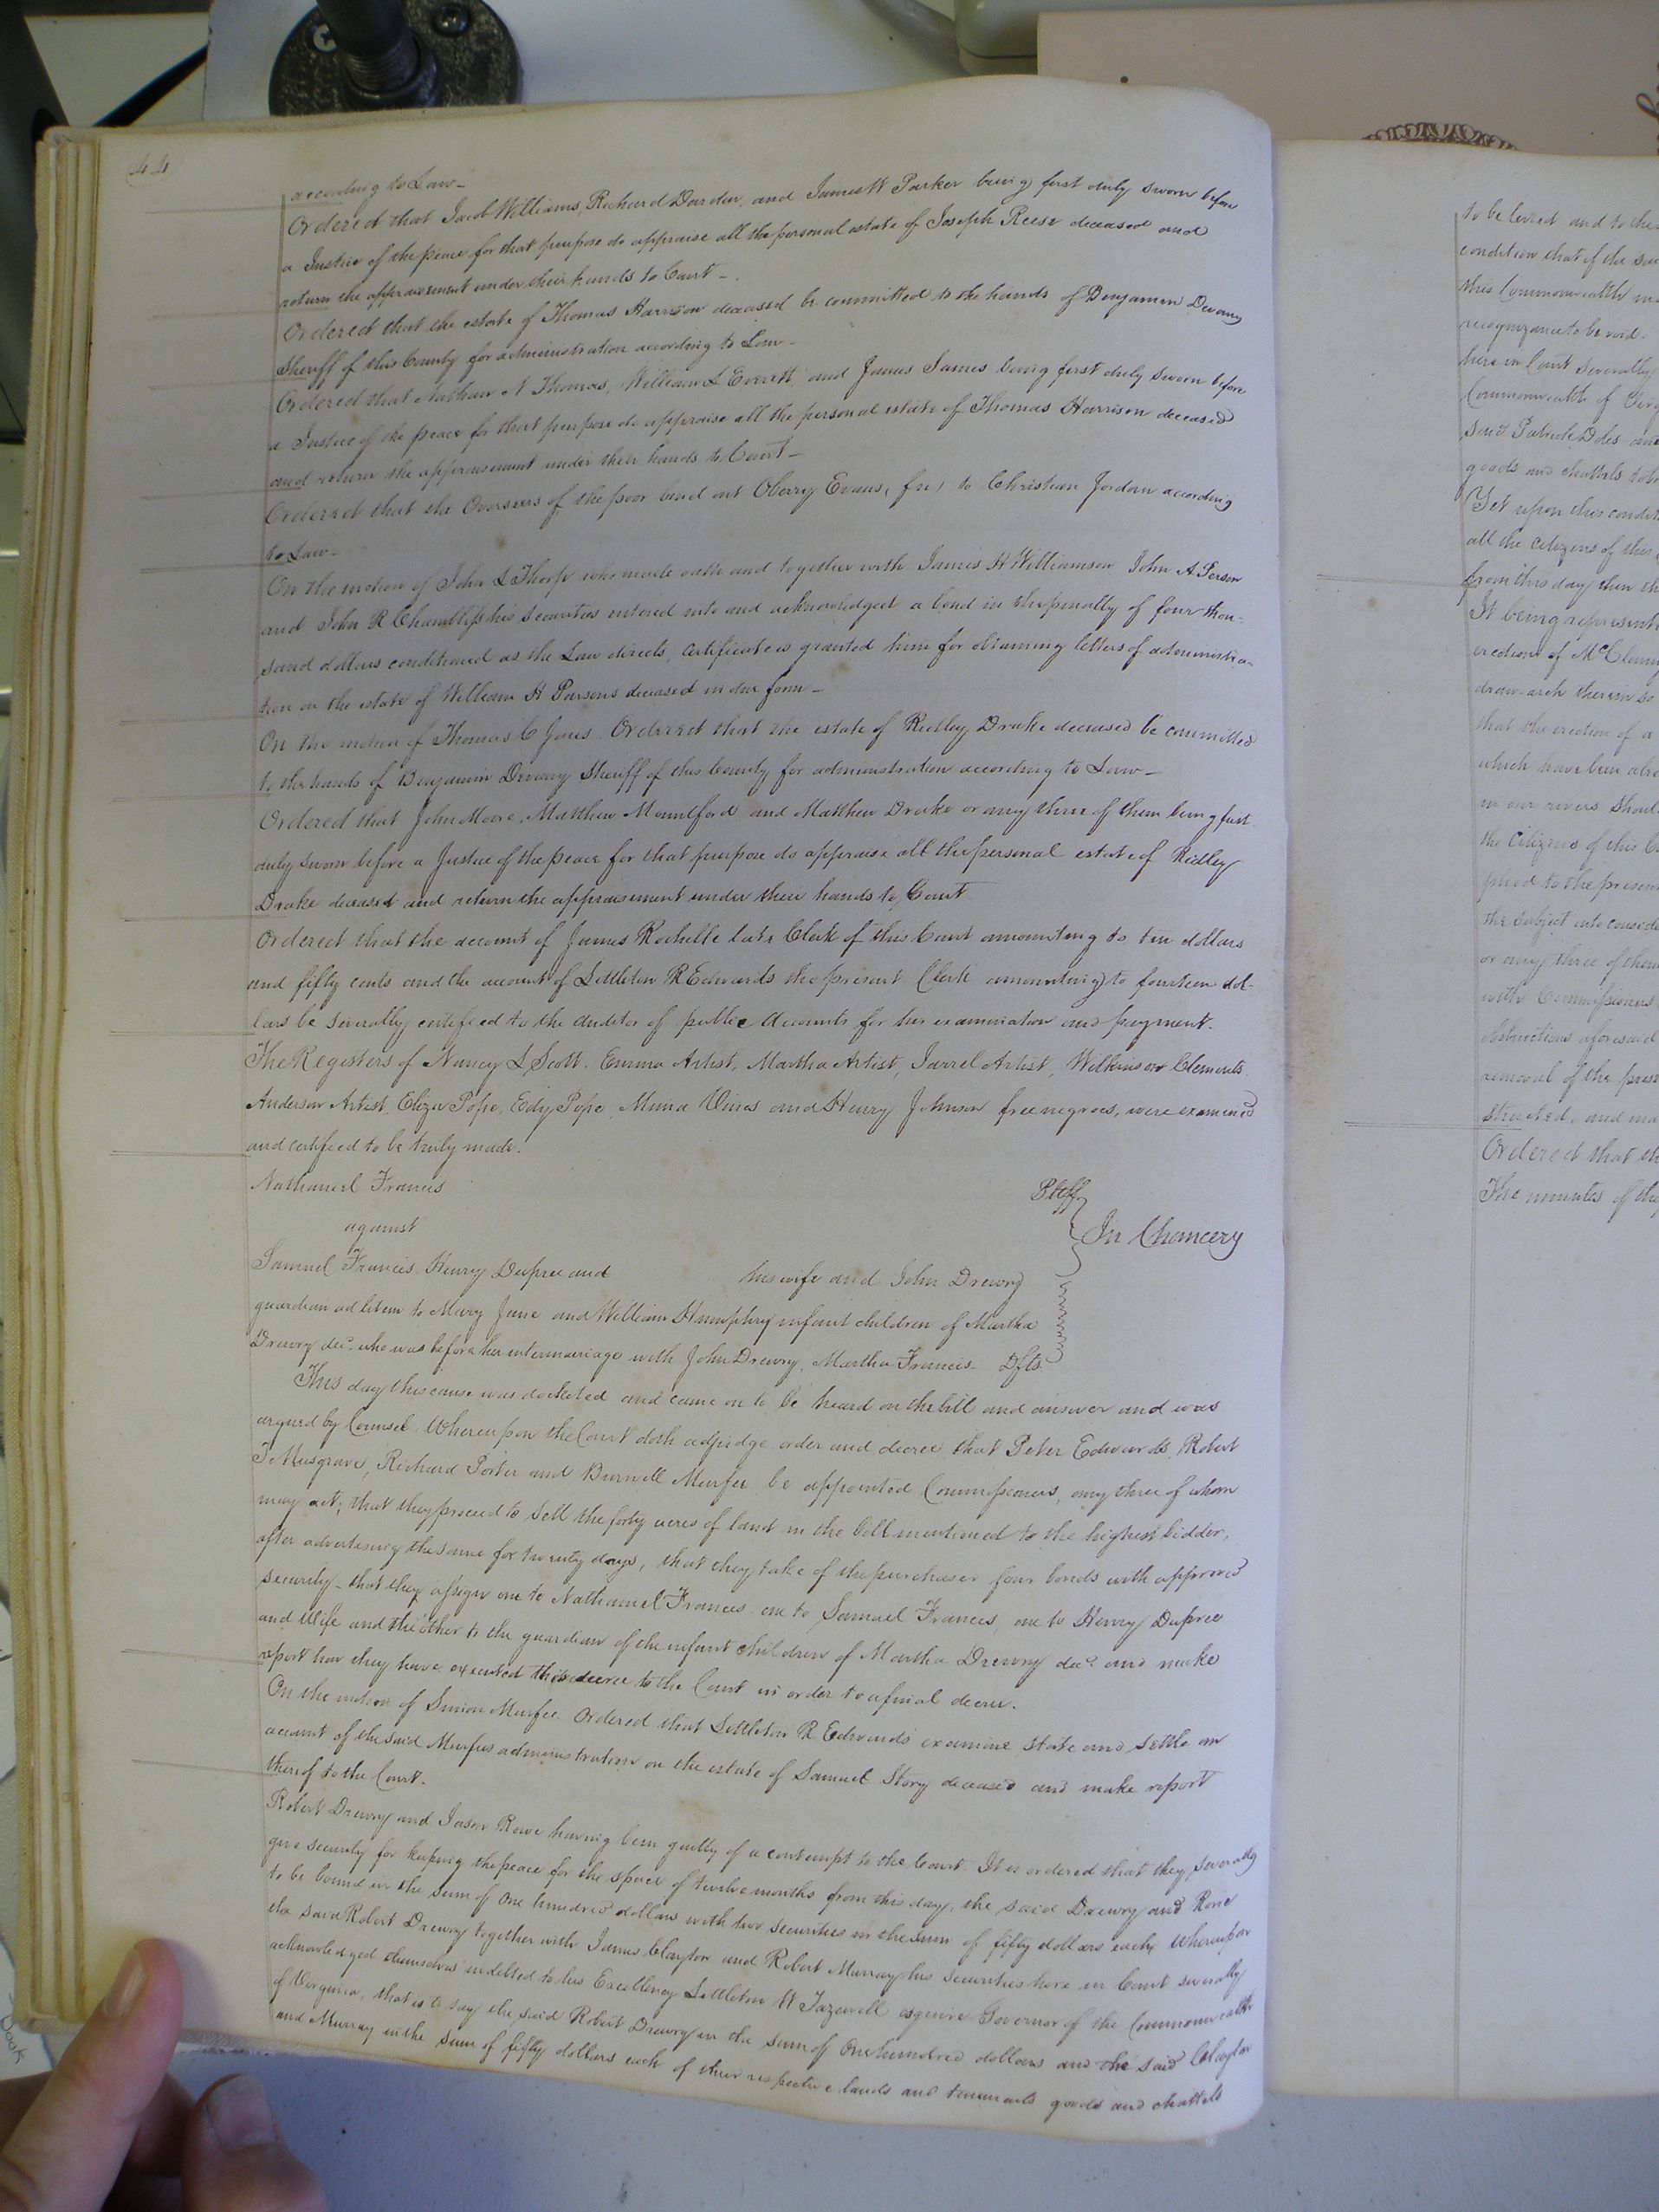 44
according to Law_
Ordered that Jacob Williams, Richard Darden, and James W Parker being first duly sworn before
a Justice of the peace for that purpose do appraise all the personal estate of Joseph Reese deceased and
return the appraisement under their hands to Court_.
Ordered that the estate of Thomas Harrison deceased be committed to the hands of Benjamin Devany
Sheriff of this County for administration according to Law_
Ordered that Nathan N Thomas, William L Everett, and James James being first duly sworn before
a Justice of the peace for that purpose do appraise all the personal estate of Thomas Harrison deceased
and return the appraisement under their hands to Court_
Ordered that the Overseers of the poor bind out Oberry Evans, to Christian Jordan according
to Law_
On the motion of John L Thorp who made oath and together with James H Williamson John A Person
and John R Chambliss his securities entered into and acknowledged a bond in the penalty of four thou-
sand dollars conditioned as the Law directs, certificate is granted him for obtaining letters of administra-
tion on the estate of William H Parsons deceased in due form_
On the motion of Thomas C Jones Ordered that the estate of Ridley Drake deceased be committed
to the hands of Benjamin Devany Sheriff of this County for administration according to Law_
Ordered that John Moore, Matthew Mountford and Matthew Drake or any three of them being first
duly sworn before a Justice of the peace for that purpose do appraise all the personal estate of Ridley
Drake deceased and return the appraisement under their hands to Court
Ordered that the account of James Rochelle late Clerk of this Court amounting to ten dollars
and fifty cents and the account of Littleton R Edwards the present Clerk amounting to fourteen dol-
lars be severally certified to the auditor of public accounts for his examination and payment.
The Registers of Nancy L Scott. Emma Artist, Martha Artist, Jarrel Artist, Wilkinson Clements
Anderson Artist, Eliza Pope, Edy Pope, Vines and Henry Johnson free negroes, were examined
and certified to be truly made.
Nathaniel Francis Pltff
against In Chancery
Samuel Francis, Henry Dupree and his wife and John Drewry
guardian ad litem to Mary Jane and William Humphrey infant children of Martha
Drewry decd. who was before her intermarriage with John Drewry, Martha Francis Dfts.
This day this cause was docketed and came on to be heard on the bill and answer and was
argued by Counsel. Whereupon the Court doth adjudge order and decree that Peter Edwards, Robert
T Musgrave, Richard Porter and Burwell Murfee be appointed Commissioners, any three of whom
may act; that they proceed to sell the forty acres of land in the bill mentioned to the highest bidder,
after advertising the same for twenty days, that they take of the purchaser four bonds with approved
security_ that they assign one to Nathaniel Francis one to Samuel Francis, one to Henry Dupree
and Wife and the other to the guardian of the infant children of Martha Drewry decd. and make
report how they have executed this decree to the Court in order to a final decree.
On the motion of Simon Murfee Ordered that Littleton R Edwards examine state and settle an
account of the said Murfees administration on the estate of Samuel Story deceased and make report
thereof to the Court.
Robert Drewry and Jason Rowe having been guilty of a contempt to the Court It is ordered that they severally
give security for keeping the peace for the space of twelve months from this day, the said Drewry and Rowe
to be bound in the sum of One hundred dollars with two securities in the sum of fifty dollars each, Whereupon
the said Robert Drewry together with James Clayton and Robert Murray his securities here in Court severally
acknowledged themselves indebted to his Excellency Littleton W Tazewell esquire Governor of the Commonwealth
of Virginia, that is to say the said Robert Drewry in the sum of One hundred dollars and the said Clayton
and Murray in the sum of fifty dollars each of their respective lands and tenements goods and chattels
to be levied and to the
condition that if the
this Commonwealth
recognizance to be void.
here in Court severally
Commonwealth of
said Patrick Doles
goods and chattels
Yet upon this
all the citizens of this
from this day then
It being
erection of McClenny
draw arch therein so
that the erection of a
which have been
in our rivers
the Citizens of this
to the present
the subject into
or any three of them
with Commissioners
obstructions aforesaid
removal of the
and
Ordered that
The minutes of